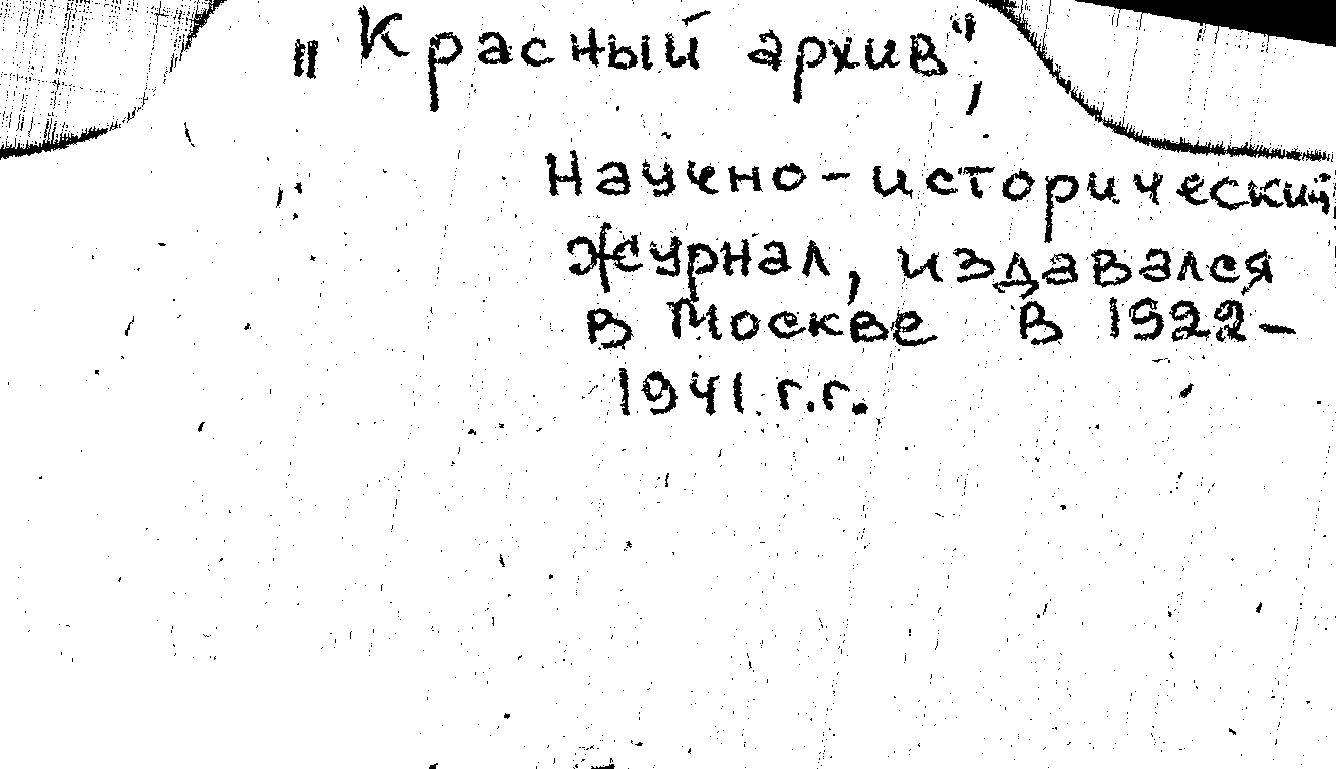 "Красный архив",
Научно-исторический
журнал, издавался
в Москве в 1922-
1941 г.г.